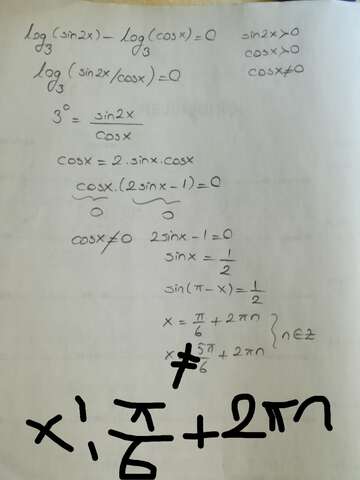 log₃(sin2x) - log₃(cosx) = 0 sin2x>0
cosx>0
log₃(sin2x/cosx) = 0 cosx≠0
3⁰ = sin2x/cosx
cosx = 2.sinx.cosx
cosx.(2sinx-1) = 0
0 0
cosx≠0 2sinx-1=0
sinx = 1/2
sin(π-x) = 1/2
x = π/6 + 2πn } n∈Z
x ≠ 5π/6 + 2πn
x: π/6 + 2πn